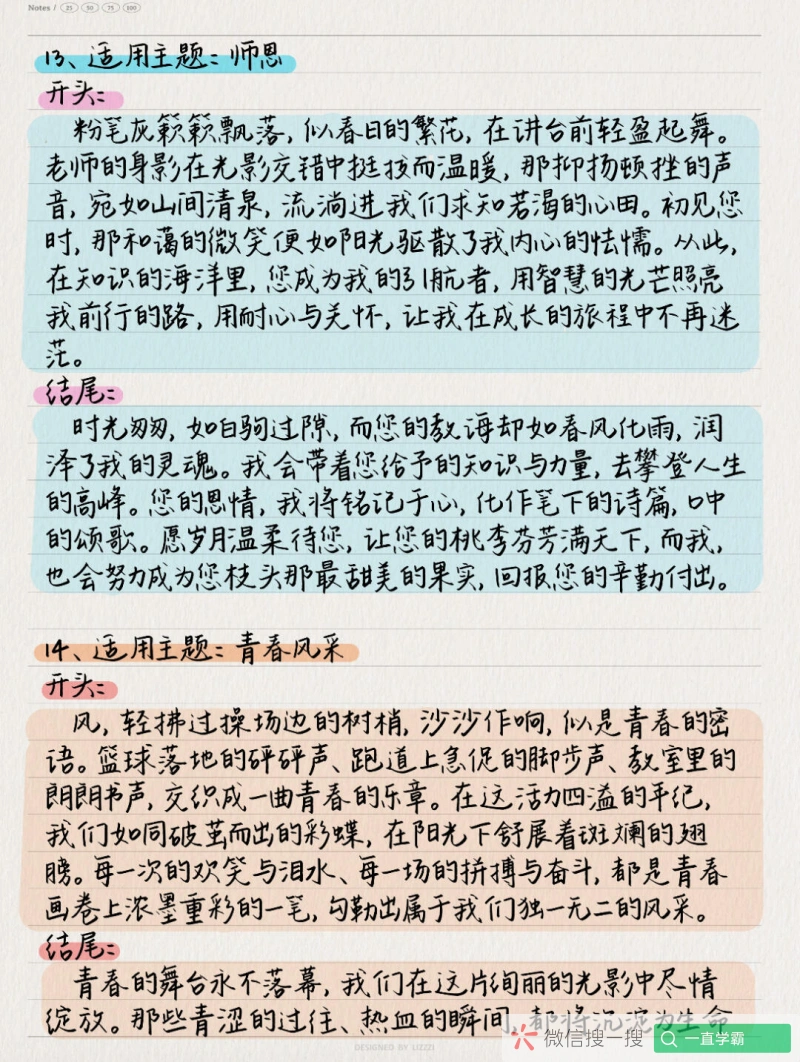 Notes / 25 50 75 100
13、适用主题：师恩
开头：
粉笔灰簌簌飘落，似春日的繁花，在讲台前轻盈起舞。
老师的身影在光影交错中挺拔而温暖，那抑扬顿挫的声
音，宛如山间清泉，流淌进我们求知若渴的心田。初见您
时，那和蔼的微笑便如阳光驱散了我内心的怯懦。从此，
在知识的海洋里，您成为我的引航者，用智慧的光芒照亮
我前行的路，用耐心与关怀，让我在成长的旅程中不再迷
茫。
结尾：
时光匆匆，如白驹过隙，而您的教诲却如春风化雨，润
泽了我的灵魂。我会带着您给予的知识与力量，去攀登人生
的高峰。您的恩情，我将铭记于心，化作笔下的诗篇，口中
的颂歌。愿岁月温柔待您，让您的桃李芬芳满天下，而我，
也会努力成为您枝头那最甜美的果实，回报您的辛勤付出。
14、适用主题：青春风采
开头：
风，轻拂过操场边的树梢，沙沙作响，似是青春的密
语。篮球落地的砰砰声、跑道上急促的脚步声、教室里的
朗朗书声，交织成一曲青春的乐章。在这活力四溢的年纪，
我们如同破茧而出的彩蝶，在阳光下舒展着斑斓的翅
膀。每一次的欢笑与泪水、每一场的拼搏与奋斗，都是青春
画卷上浓墨重彩的一笔，勾勒出属于我们独一无二的风采。
结尾：
青春的舞台永不落幕，我们在这片绚丽的光影中尽情
绽放。那些青涩的过往、热血的瞬间，都将沉淀为生命
DESIGNED BY LIZZZI
微信搜一搜 一直学霸